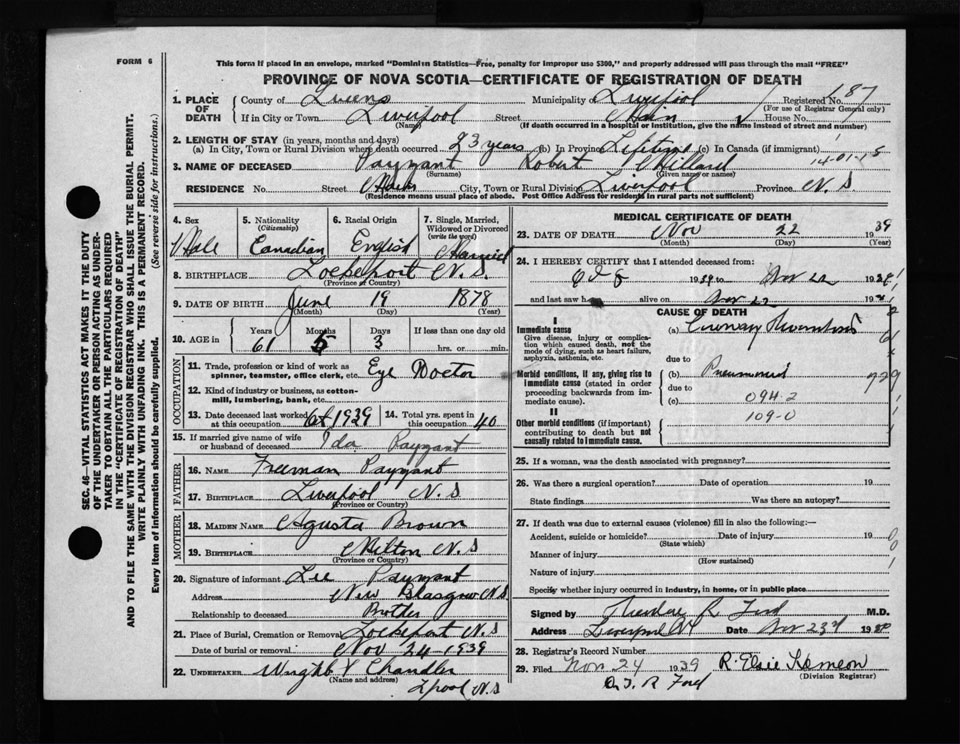 FORM 6
This form if placed in an envelope, marked "Dominion Statistics—Free, penalty for improper use $300," and properly addressed will pass through the mail "FREE"
PROVINCE OF NOVA SCOTIA—CERTIFICATE OF REGISTRATION OF DEATH
1. PLACE OF DEATH
County of Queens Municipality Liverpool Registered No. 187
(For use of Registrar General only)
If in City or Town Liverpool Street Main House No.
(Name) (If death occurred in a hospital or institution, give the name instead of street and number)
2. LENGTH OF STAY (in years, months and days)
(a) In City, Town or Rural Division where death occurred 23 years (b) In Province Lifetime (c) In Canada (if immigrant)
3. NAME OF DECEASED Payzant Robert Millard 14-01-15
(Surname) (Given name or names)
RESIDENCE No. Street Main City, Town or Rural Division Liverpool Province N. S
(Residence means usual place of abode. Post Office Address for residents in rural parts not sufficient)
4. Sex Male
5. Nationality (Citizenship) Canadian
6. Racial Origin English
7. Single, Married, Widowed or Divorced (write the word) Married
8. BIRTHPLACE Lockeport N. S.
(Province or Country)
9. DATE OF BIRTH June 19 1878
(Month) (Day) (Year)
10. AGE in Years 61 Months 5 Days 3 If less than one day old hrs. or min.
OCCUPATION
11. Trade, profession or kind of work as spinner, teamster, office clerk, etc. Eye Doctor
12. Kind of industry or business, as cotton-mill, lumbering, bank, etc.
13. Date deceased last worked at this occupation Oct 1939 14. Total yrs. spent in this occupation 40
15. If married give name of wife or husband of deceased Ida Payzant
FATHER
16. NAME Freeman Payzant
17. BIRTHPLACE Liverpool N. S
(Province or Country)
MOTHER
18. MAIDEN NAME Agusta Brown
19. BIRTHPLACE Milton N. S
(Province or Country)
20. Signature of informant Lee Payzant
Address New Glasgow N. S.
Relationship to deceased Brother
21. Place of Burial, Cremation or Removal Lockeport N. S
Date of burial or removal Nov 24-1939
22. UNDERTAKER Wright & Chandler
(Name and address) Lpool N. S
MEDICAL CERTIFICATE OF DEATH
23. DATE OF DEATH Nov 22 1939
(Month) (Day) (Year)
24. I HEREBY CERTIFY that I attended deceased from:
1939 to Nov 22 1939
and last saw h alive on Nov 22 19
CAUSE OF DEATH
I
Immediate cause
Give disease, injury or complication which caused death, not the mode of dying, such as heart failure, asphyxia, asthenia, etc.
(a) Coronary Thrombosis
due to
Morbid conditions, if any, giving rise to immediate cause (stated in order proceeding backwards from immediate cause).
(b) Pneumonia
due to
(c) 094-2
II
109-0
Other morbid conditions (if important) contributing to death but not causally related to immediate cause.
25. If a woman, was the death associated with pregnancy?
26. Was there a surgical operation? Date of operation 19
State findings Was there an autopsy?
27. If death was due to external causes (violence) fill in also the following:—
Accident, suicide or homicide? Date of injury 19
(State which)
Manner of injury
(How sustained)
Nature of injury
Specify whether injury occurred in industry, in home, or in public place
Signed by Theodore R Ford M.D.
Address Liverpool NS Date Nov 23rd 19
28. Registrar's Record Number
29. Filed Nov 24 1939 R. Elsie
(Division Registrar)
T. R Ford
SEC. 46—VITAL STATISTICS ACT MAKES IT THE DUTY
OF THE UNDERTAKER OR PERSON ACTING AS UNDERTAKER TO OBTAIN ALL THE PARTICULARS REQUIRED
IN THE "CERTIFICATE OF REGISTRATION OF DEATH"
AND TO FILE THE SAME WITH THE DIVISION REGISTRAR WHO SHALL ISSUE THE BURIAL PERMIT.
WRITE PLAINLY WITH UNFADING INK. THIS IS A PERMANENT RECORD.
Every item of information should be carefully supplied. (See reverse side for instructions.)